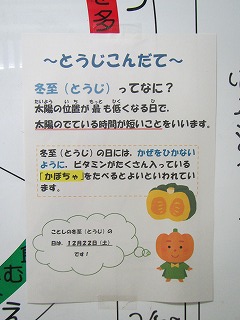 を多
～とうじこんだて～
冬至（とうじ）ってなに？
たいよう いち もっと ひく ひ
太陽の位置が最も低くなる日で、
太陽のでている時間が短いことをいいます。
冬至（とうじ）の日には、かぜをひかない
ように、ビタミンがたくさん入っている
「かぼちゃ」をたべるとよいといわれてい
ます。
ことしの冬至（とうじ）の
日は、１２月２２日（土）
です！